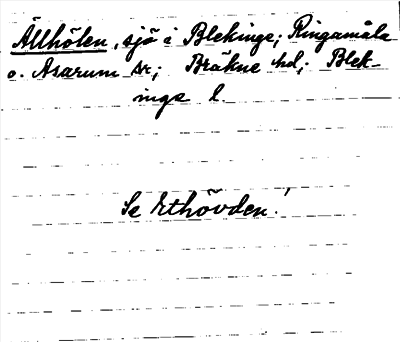 Ällhölen, sjö i Blekinge; Ringamåla
o. Asarum sr; Bräkne hd; Blek-
inge l.
Se Ethövden!